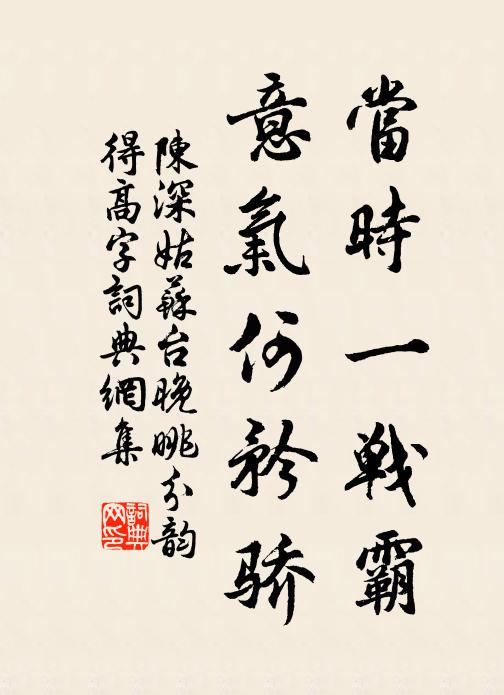 當時一戰霸
意氣何矜骄
陳深姑蘇台晚眺分韵
得高字詞典網集
詞典
网印